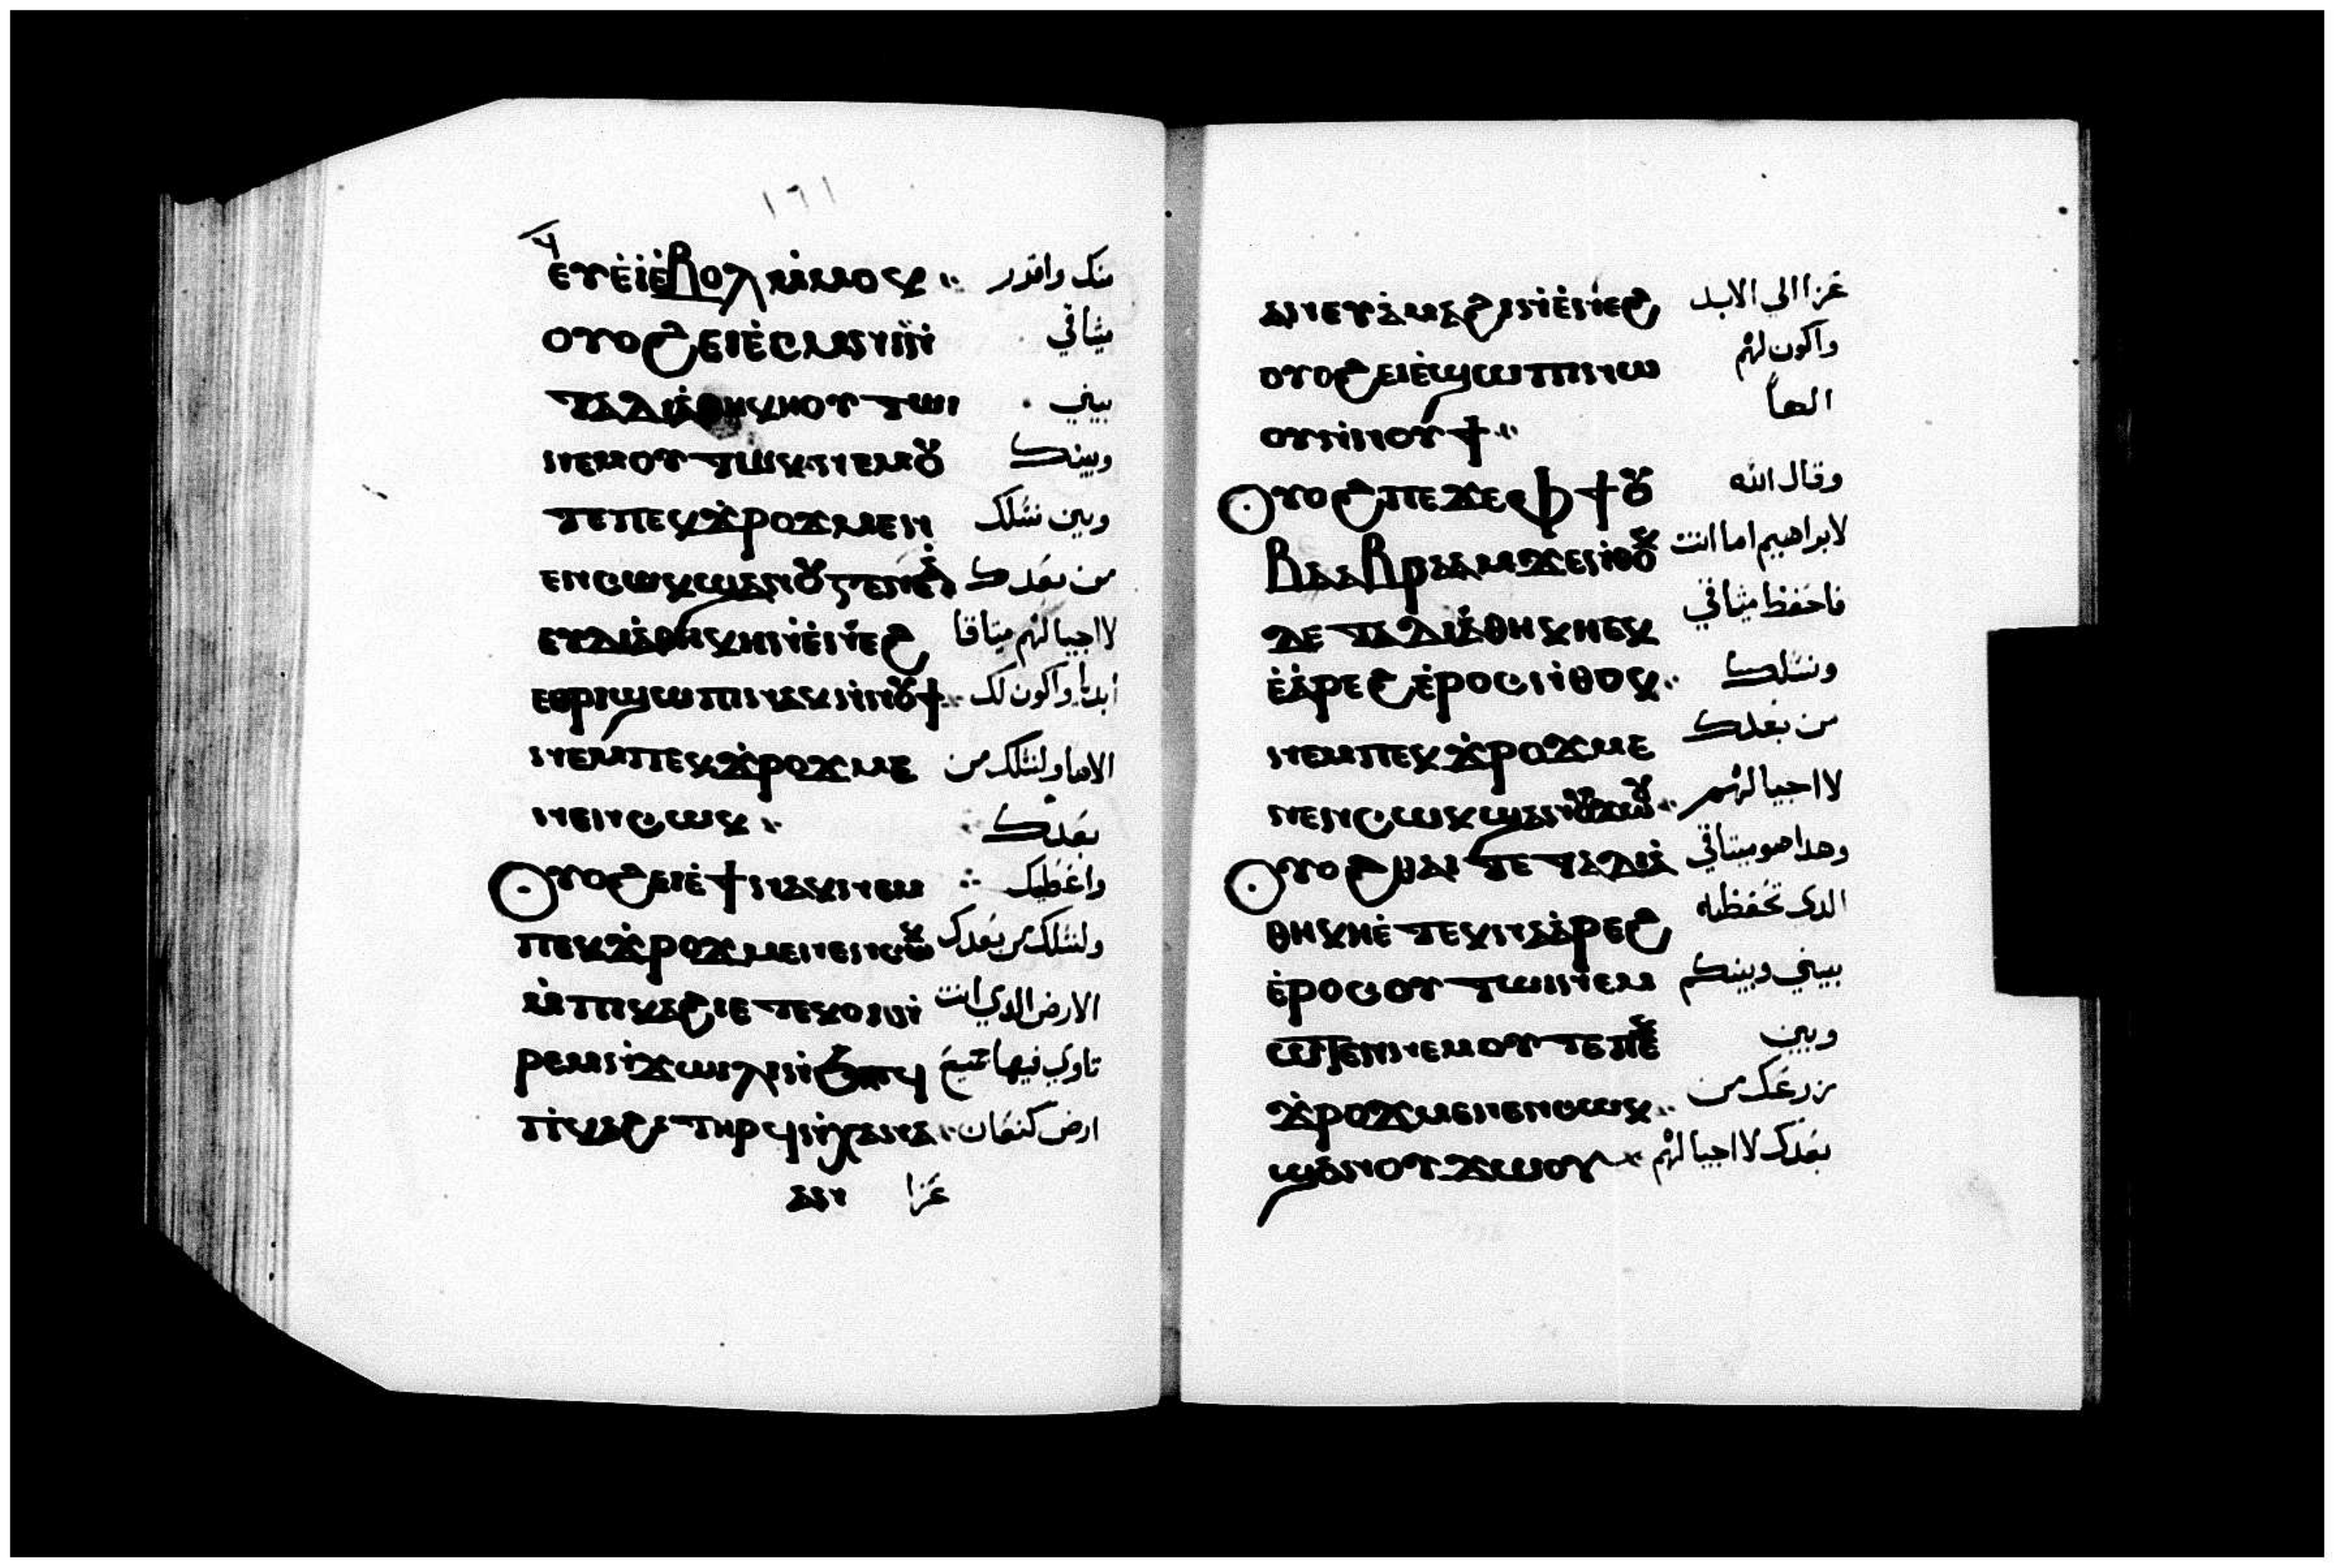 ١٦١
ⲉⲩⲉ̀ⲓ̀ⲉ̀ⲃⲟⲗ ⲙ̀ⲙⲟⲕ منك واقرر
ⲟⲩⲟϩ ⲉⲓⲉ̀ⲥⲉⲙⲛⲓ ميثاقي
ⲧⲁⲇⲓⲁ̀ⲑⲏⲕⲏ ⲟⲩⲧⲱⲓ بيني
ⲛⲉⲙⲟⲩⲧⲱⲕ ⲛⲉⲙⲟⲩ وبينك
ⲧⲉⲡⲉⲕϫ̀ⲣⲟϫ ⲙⲉⲛ وبين نسلك
ⲉⲛⲥⲱⲕ ϣⲁⲛⲟⲩϫⲉⲛⲉⲁ̀ من بعدك
ⲉⲩⲇⲓⲁ̀ⲑⲏⲕⲏ ⲛ̀ⲉ̀ⲛⲉϩ لااجيالهم ميتاقا
ⲉⲑⲣⲓϣⲱⲡⲓ ⲛⲁⲕ ⲛ̀ⲛⲟⲩϯ ابديا واكون لك
ⲛⲉⲙ ⲡⲉⲕϫ̀ⲣⲟϫ ⲙⲉ الاها ولنسلك من
ⲛⲉⲛⲥⲱⲕ بعدك
ⲟⲩⲟϩ ⲉⲓⲉ̀ϯ ⲛⲁⲕ ⲛⲉⲙ واعطيك
ⲡⲉⲕϫ̀ⲣⲟϫ ⲙⲉⲛⲉⲛⲥⲱⲕ ولنسلك من بعدك
ⲙ̀ⲡⲓⲕⲁϩⲓ ⲉⲧⲉⲕⲟⲓ ⲛ̀ الارض الذي انت
ⲣⲉⲙⲛ̀ϫⲱⲓⲗⲓ ⲛ̀ϧⲏⲧϥ تاوي فيها جميع
ⲡⲓⲕⲁϩⲓ ⲧⲏⲣϥ ⲛ̀ⲭⲁⲛⲁ ارض كنعان
ⲁⲛ عزا
ⲁⲛ ⲉⲩⲁ̀ⲙⲁϩⲓ ⲛ̀ⲉ̀ⲛⲉϩ عزا الي الابد
ⲟⲩⲟϩ ⲉⲓⲉ̀ϣⲱⲡⲓ ⲛⲱ واكون لهم
ⲟⲩ ⲛ̀ⲛⲟⲩϯ الهاً
ⲟⲩⲟϩ ⲡⲉϫⲉ ⲫϯ ⲟⲩ وقال الله
ⲃⲁ ⲁⲃⲣⲁⲁⲙ ϫⲉ ⲛ̀ⲑⲟⲕ لابراهيم اما انت
ⲇⲉ ⲧⲁⲇⲓⲁ̀ⲑⲏⲕⲏ ⲉⲕ فاحفظ ميثاقي
ⲉ̀ⲁ̀ⲣⲉϩ ⲉ̀ⲣⲟⲥ ⲛ̀ⲑⲟⲕ ونسلك
ⲛⲉⲙ ⲡⲉⲕϫ̀ⲣⲟϫ ⲙⲉ من بعدك
ⲛⲉⲛⲥⲱⲕ ϣⲁⲛⲟⲩϫⲱⲟⲩ لااجيالهم
ⲟⲩⲟϩ ⲑⲁⲓ ⲧⲉ ⲧⲁⲇⲓⲁ̀ وهدا هو ميتاقي
ⲑⲏⲕⲏ ⲉ̀ⲧⲉⲕⲛⲁⲁ̀ⲣⲉϩ الدي تحفظه
ⲉ̀ⲣⲟⲥ ⲟⲩⲧⲱⲓ ⲛⲉⲙ بيني وبينكم
ⲱⲧⲉⲛ ⲛⲉⲙⲟⲩⲧⲉ ⲡⲉⲕ وبين
ϫ̀ⲣⲟϫ ⲙⲉⲛⲉⲛⲥⲱⲕ زرعك من
ϣⲁⲛⲟⲩϫⲱⲟⲩ بعدك لااجيالهم